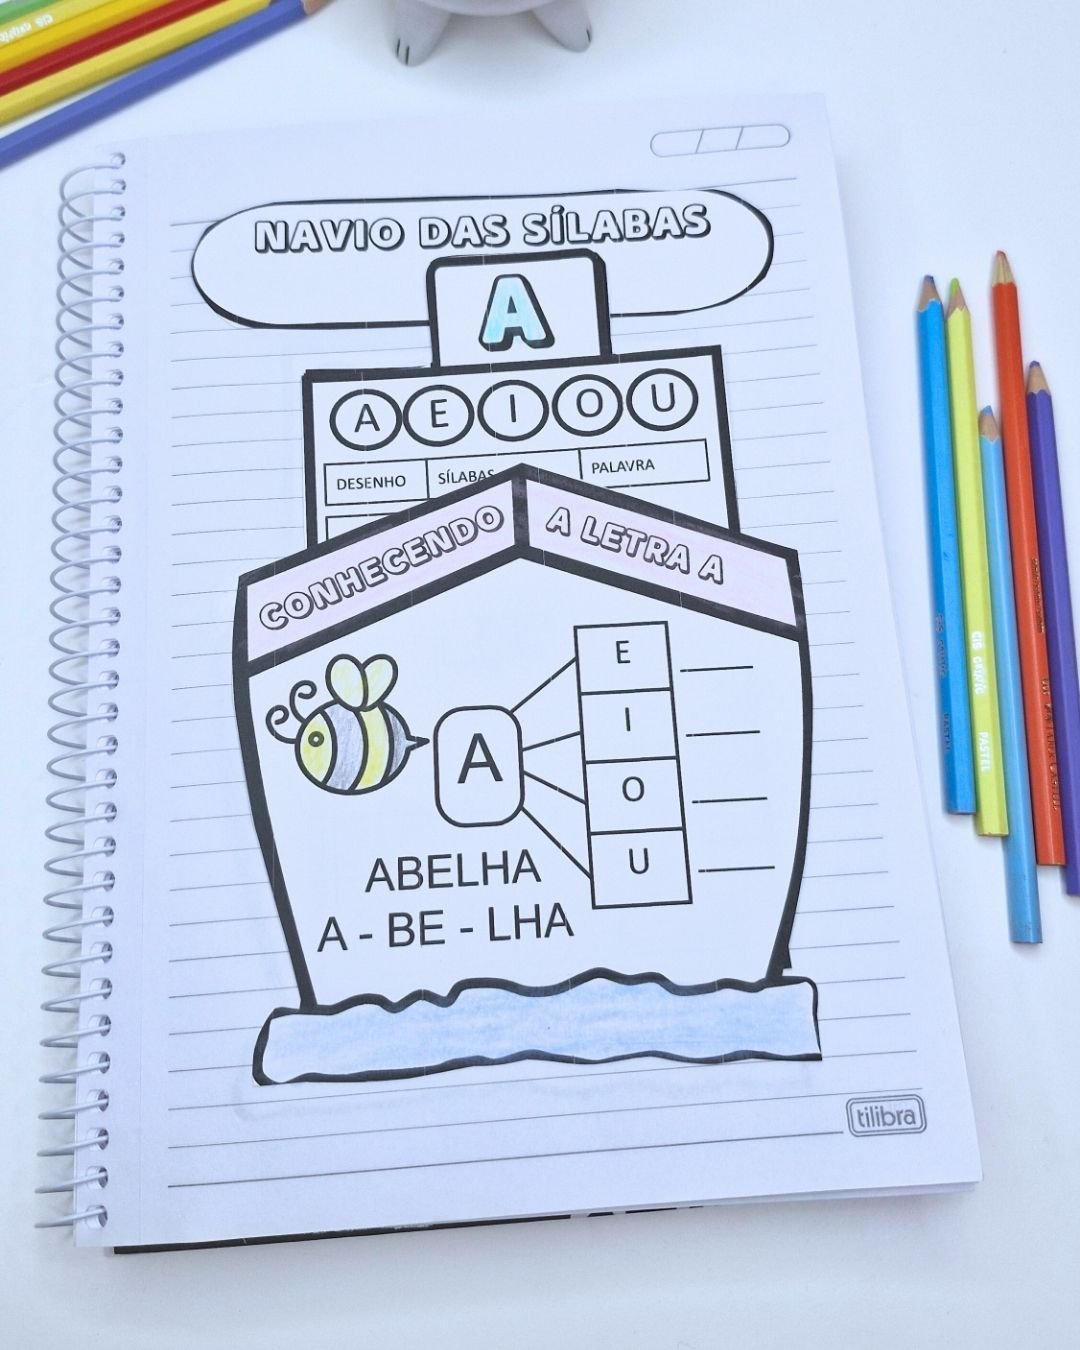 NAVIO DAS SÍLABAS
A
A E I O U
DESENHO SÍLABAS PALAVRA
CONHECENDO A LETRA A
E
I
A
O
U
ABELHA
A - BE - LHA
tilibra
CIS
PASTEL